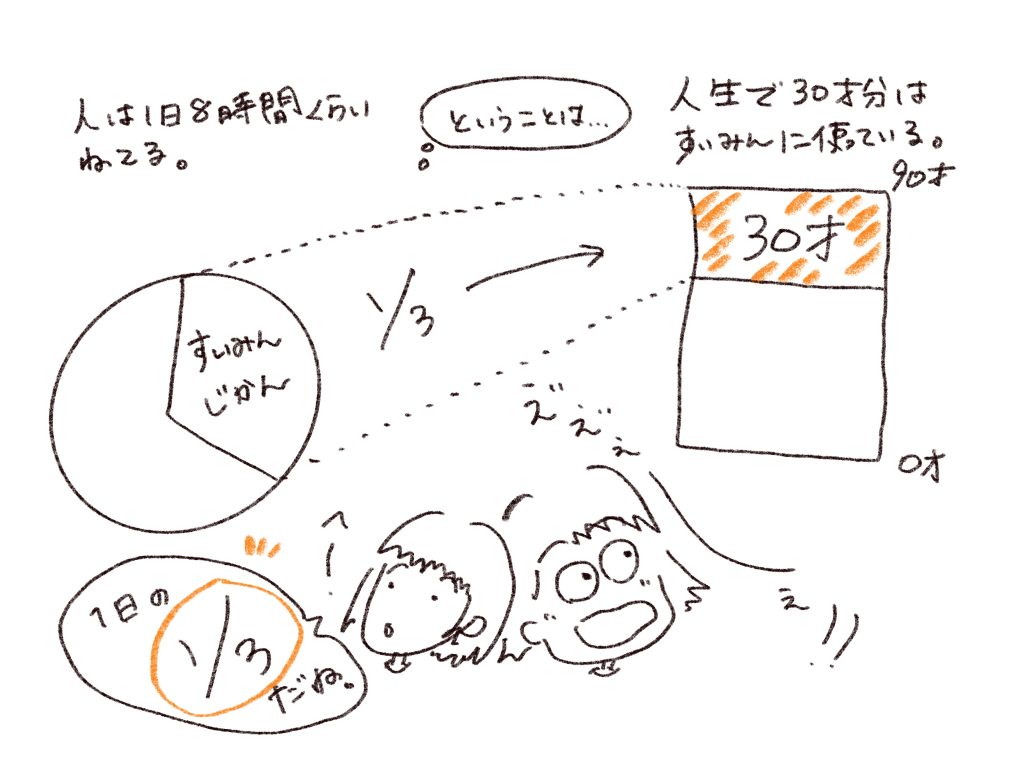 人は1日8時間くらい
ねてる。
ということは…
人生で30才分は
すいみんに使っている。
90才
30才
0才
1/3
すいみん
じかん
ええぇぇ!!
へー
1日の
1/3
だね。